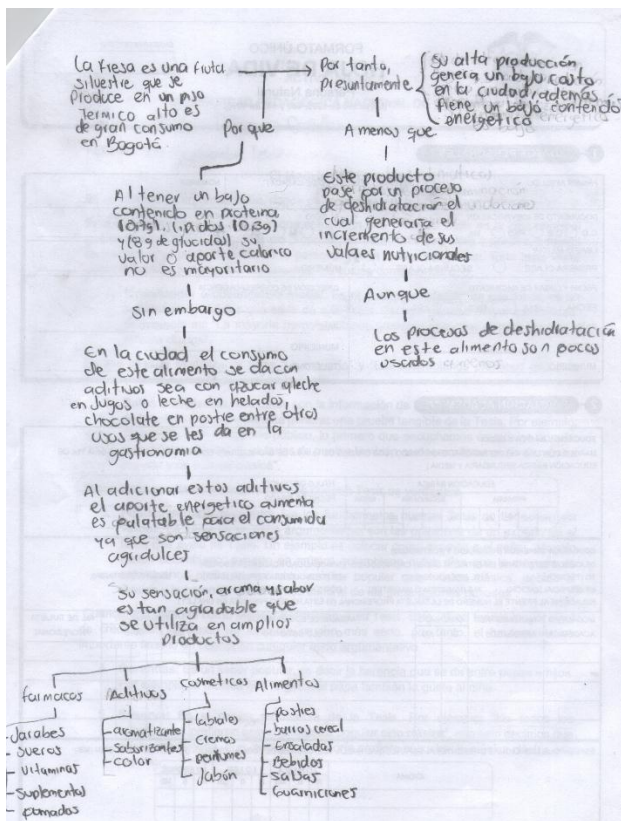 La fresa es una fruta
silvestre que se
Produce en un piso
Termico alto es
de gran consumo
en Bogotá.
Por tanto,
presuntamente
su alta producción,
genera un bajo costo
en la ciudad, además
tiene un bajo contenido
energetico
Porque
A menos que
Al tener un bajo
contenido en proteina
(0,7g). Lipidos (0,3g)
y (8 g de glucidos) su
valor o aporte calorico
no es mayoritario
Este producto
pase por un proceso
de deshidratación el
cual generaria el
incremento de sus
valores nutricionales
Sin embargo
Aunque
Los procesos de deshidratación
en este alimento son pocos
usados
En la ciudad el consumo
de este alimento se da con
aditivos sea con azucar y leche
en Jugos o leche en helados,
chocolate en postre entre otros
usos que se les da en la
gastronomia
Al adicionar estos aditivos
el aporte energetico aumenta
es palatable para el consumidor
ya que son sensaciones
agridulces
su sensación, aroma y sabor
es tan agradable que
se utiliza en amplios
productos
farmacos
Aditivos
cosmeticos
Alimentos
- Jarabes
- sueros
- vitaminas
- suplemental
- pomadas
- aromatizante
- saborizantes
- color
- labiales
- cremas
- perfumes
- Jabón
- postres
- barras cereal
- ensaladas
- Bebidas
- salsas
- Guarniciones